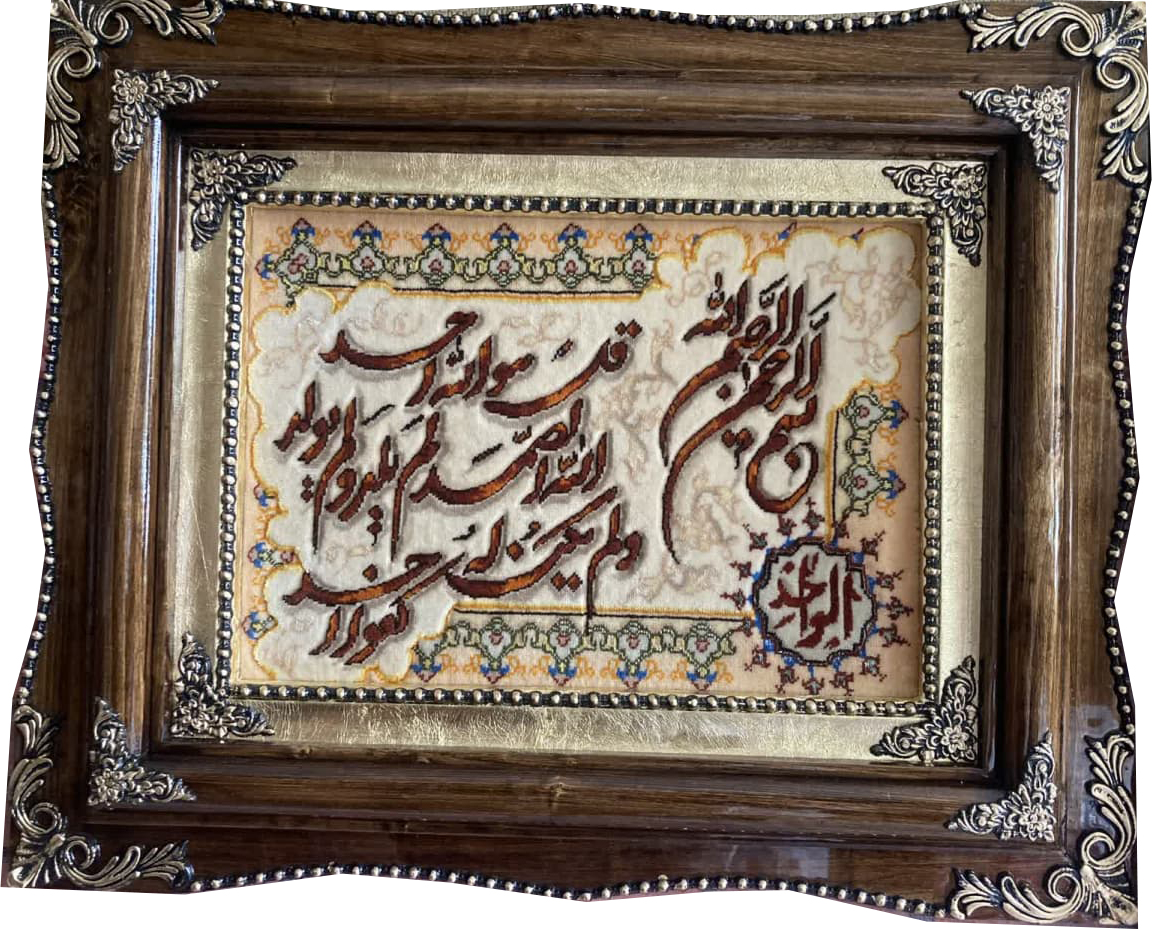 بسم الله الرحمن الرحیم
قل هو الله احد
الله الصمد لم یلد ولم یولد
ولم یکن له
کفوا احد
الواحد